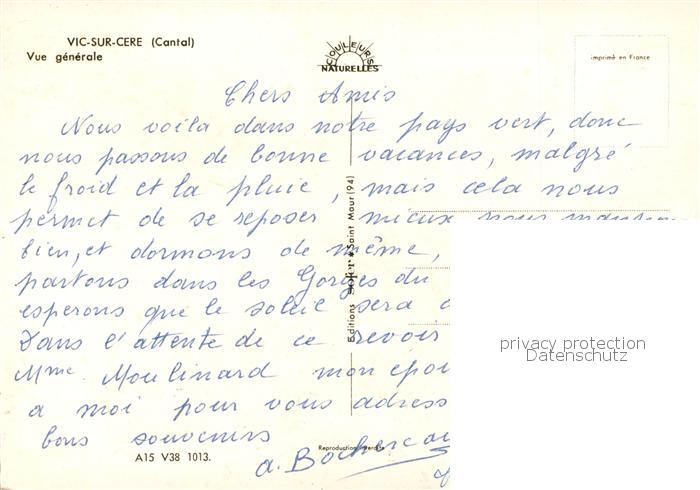 VIC-SUR-CERE (Cantal)
Vue générale
COULEURS
NATURELLES
imprimé en France
Chers Amis
Nous voila dans notre pays vert, donc
nous passons de bonne vacances, malgré
le froid et la pluie, mais cela nous
permet de se reposer, mieux nous
bien, et dormons de même,
partons dans les Gorges du
esperons que le soleil sera
Dans l'attente de ce revoir
Mme Moulinard mon
a moi pour vous
bons souvenirs
a.
Editions
Saint Maur (94)
Reproduction interdite
A15 V38 1013.
privacy protection
Datenschutz